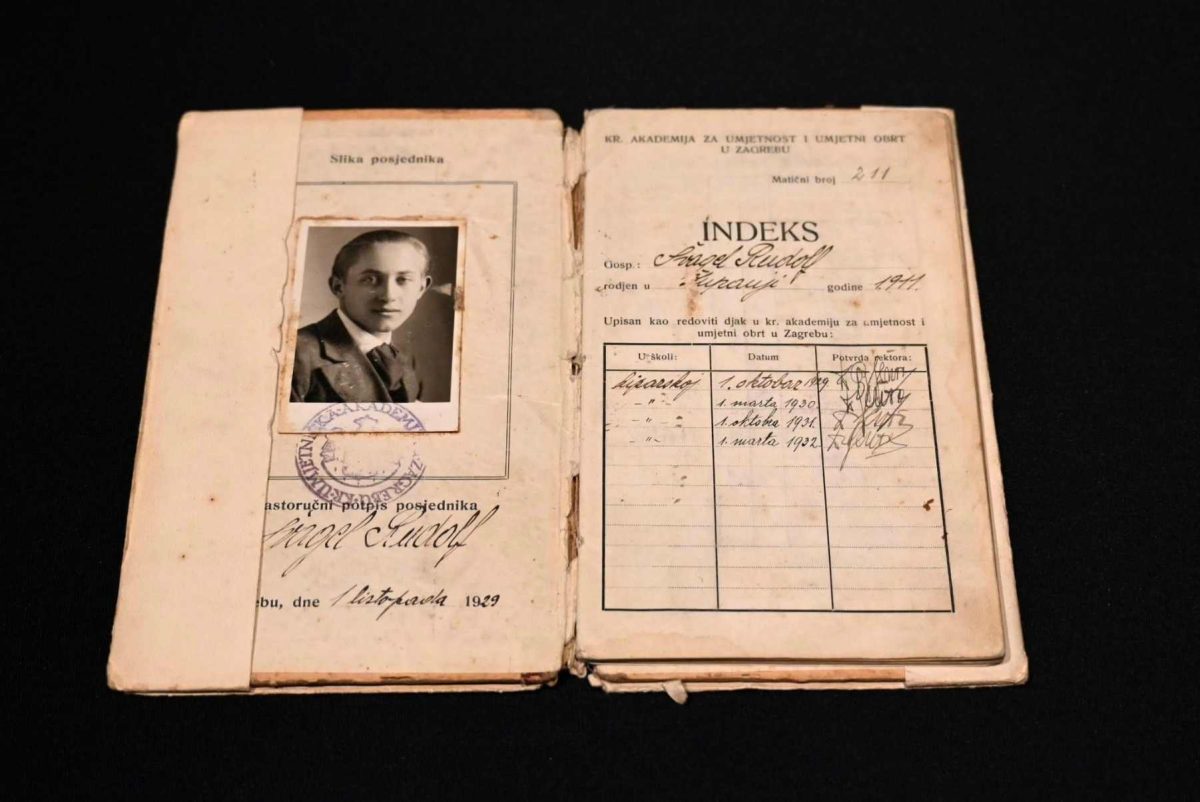 Slika posjednika
KR. UMJETNIČKA AKADEMIJA ZAGREBU
astoručni potpis posjednika
Švagel Rudolf
ebu, dne 1 listopada 1929
KR. AKADEMIJA ZA UMJETNOST I UMJETNI OBRT
U ZAGREBU
Matični broj 211
INDEKS
Gosp.: Švagel Rudolf
rodjen u Županji godine 1911.
Upisan kao redoviti djak u kr. akademiju za umjetnost i
umjetni obrt u Zagrebu:
U školi: Datum Potvrda rektora:
kiparskoj 1. oktobar 1929
-"- 1. marta 1930.
-"- 1. oktobra 1931.
-"- 1. marta 1932